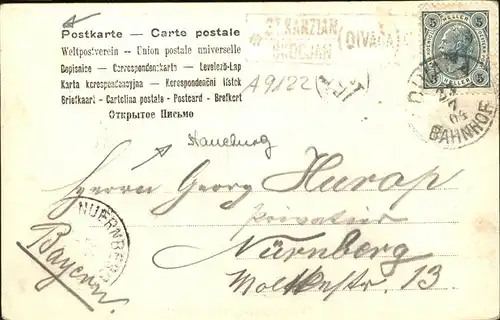 Postkarte — Carte postale
Weltpostverein — Union postale universelle
Dopisnice — Correspondenzkarte — Levelezö-Lap
Karta korespondencyjna — Korespondenční lístek
Briefkaart — Cartolina postale — Postcard — Brefkort
Открытое Письмо
ST KANZIAN
ŠKOCJAN
(DIVAČA)
A9122
5 HELLER 5
BAHNHOF
Herrn Georg Hurap
Privatier
Nürnberg
Moltkestr. 13
NUERNBERG
Bayern